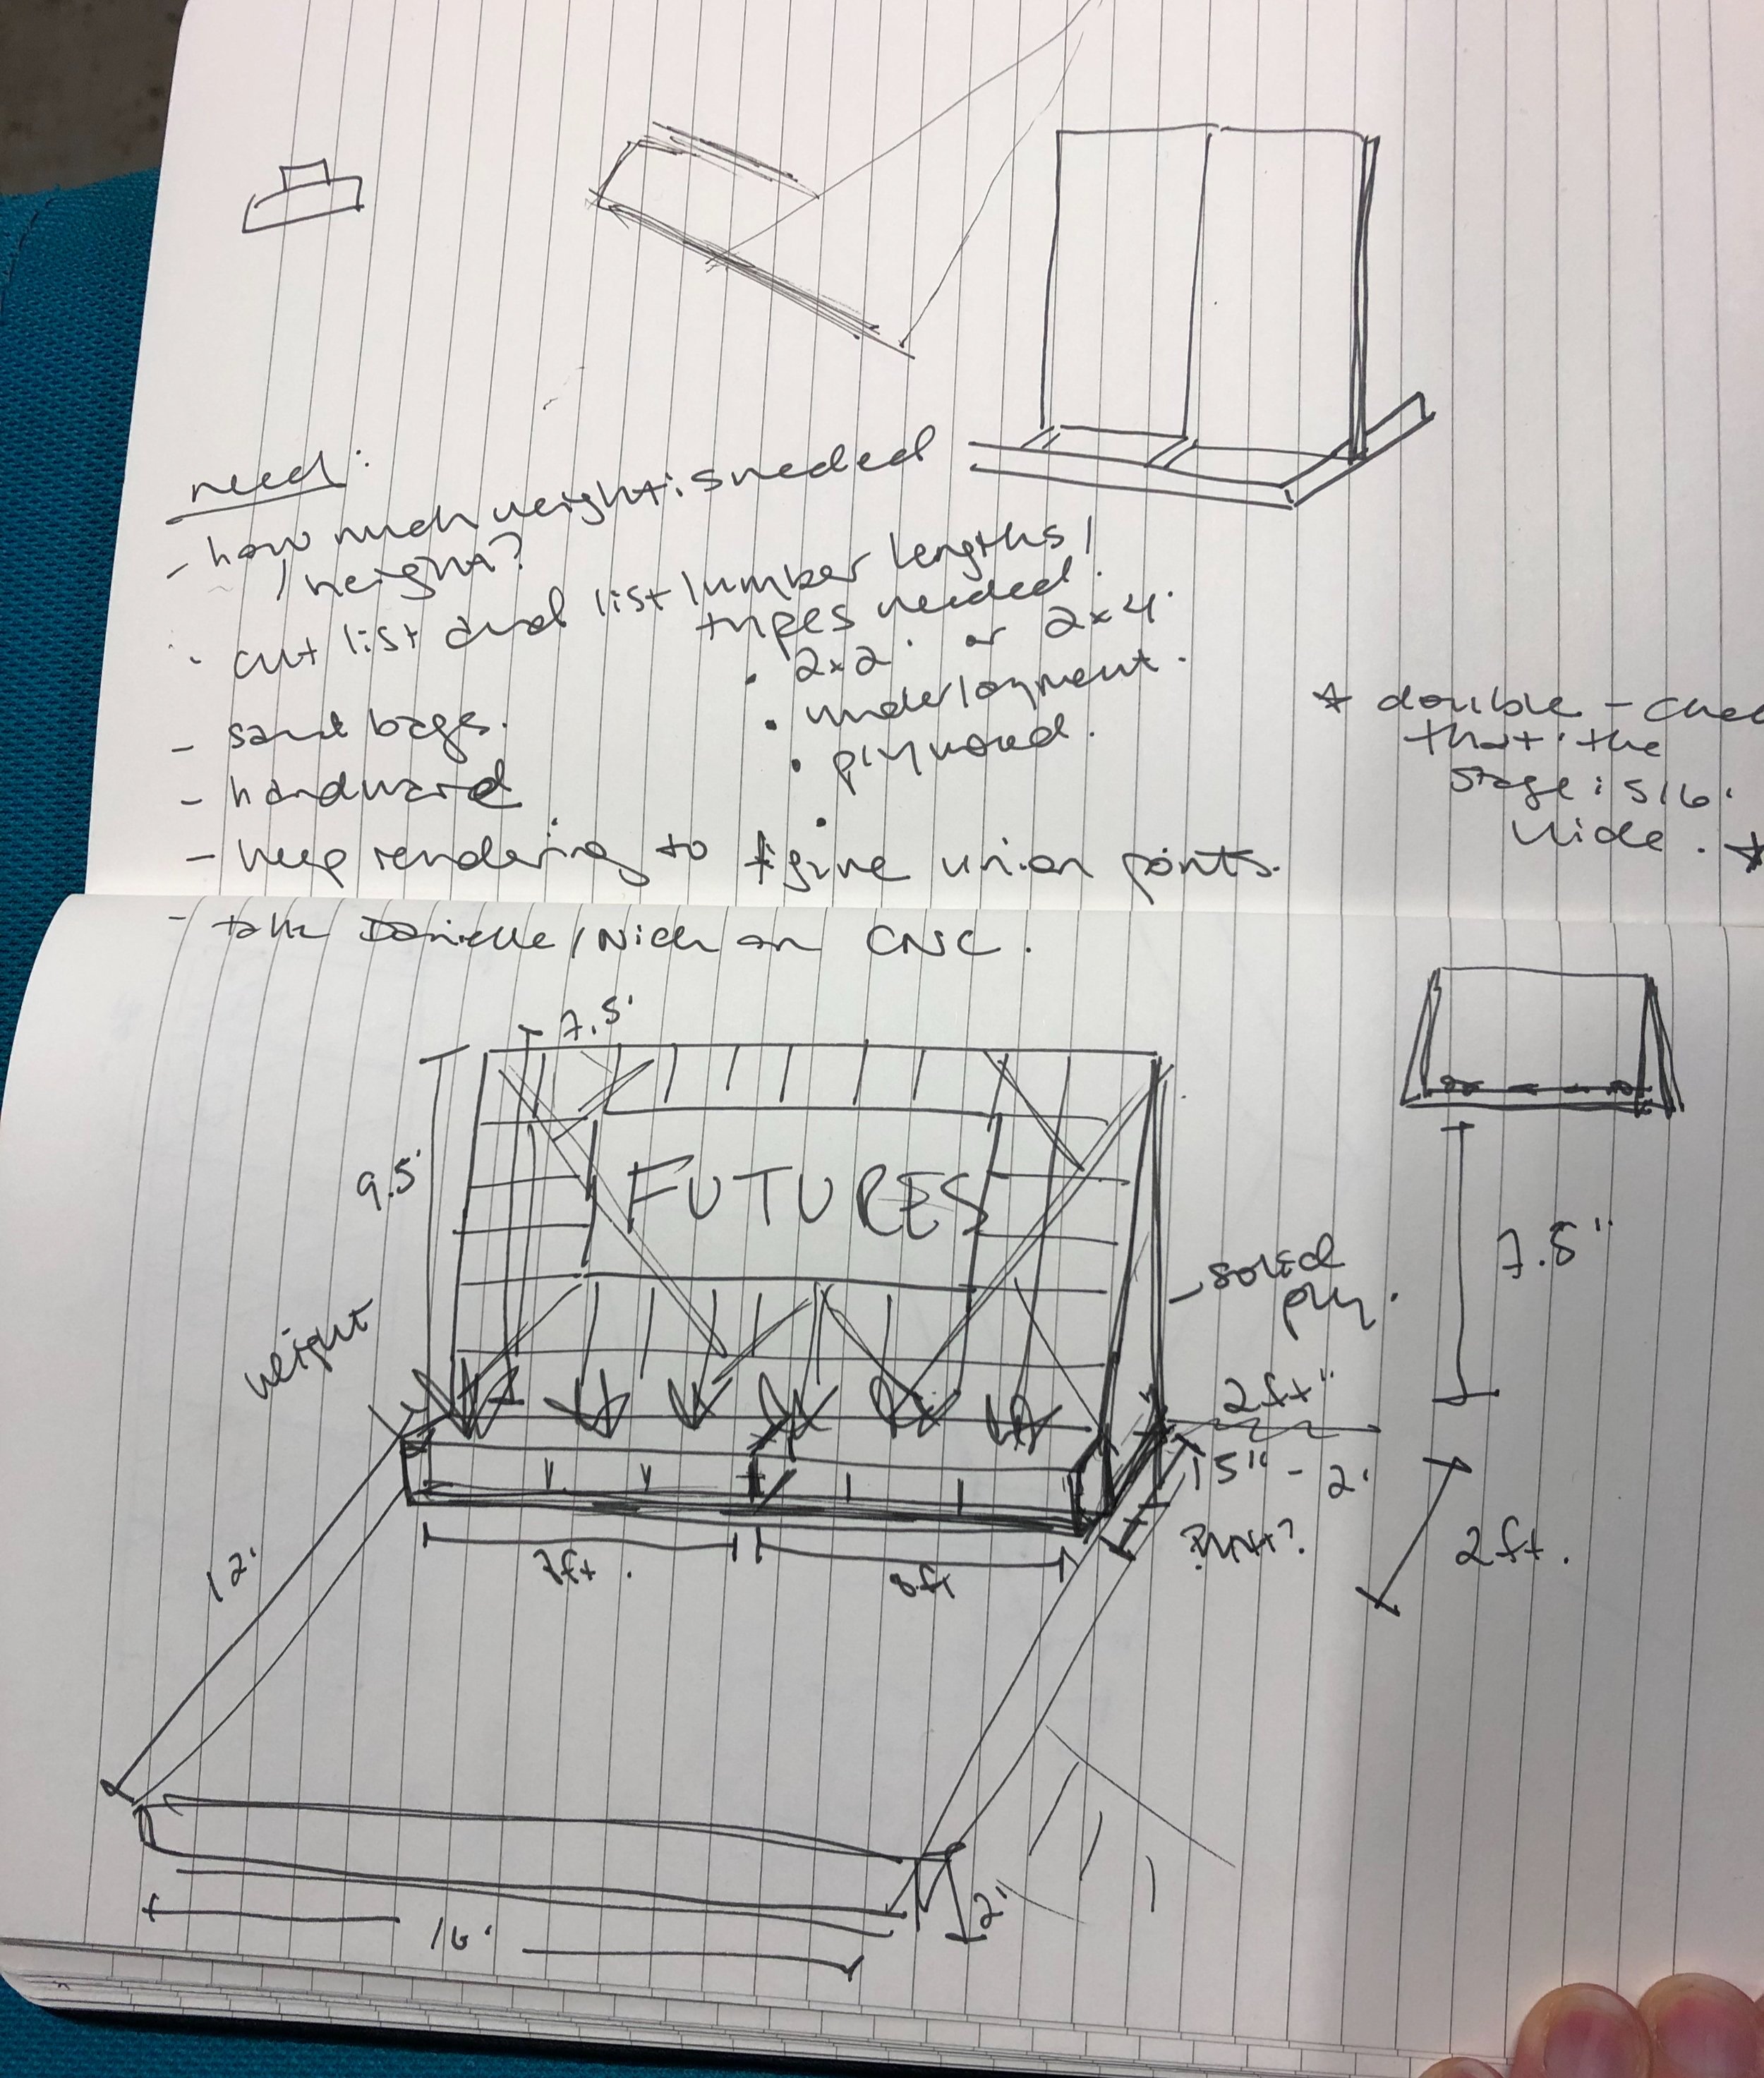 need:
- how much weight is needed
/ height?
- cut list and list lumber lengths /
types needed.
• 2x2' or 2x4'
• underlayment.
• plywood.
- sand bags.
- hardware
- keep rendering to figure union points.
- talk Danielle / Nick on CNC.
* double-chec
that the
stage is 16'
wide. *
7.5'
9.5'
FUTURES
solid
ply.
7.5"
weight
2ft"
15" - 2'
2ft.
8ft
12'
16'
2'